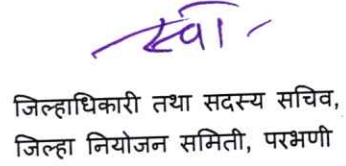 स्वा/-
जिल्हाधिकारी तथा सदस्य सचिव,
जिल्हा नियोजन समिती, परभणी